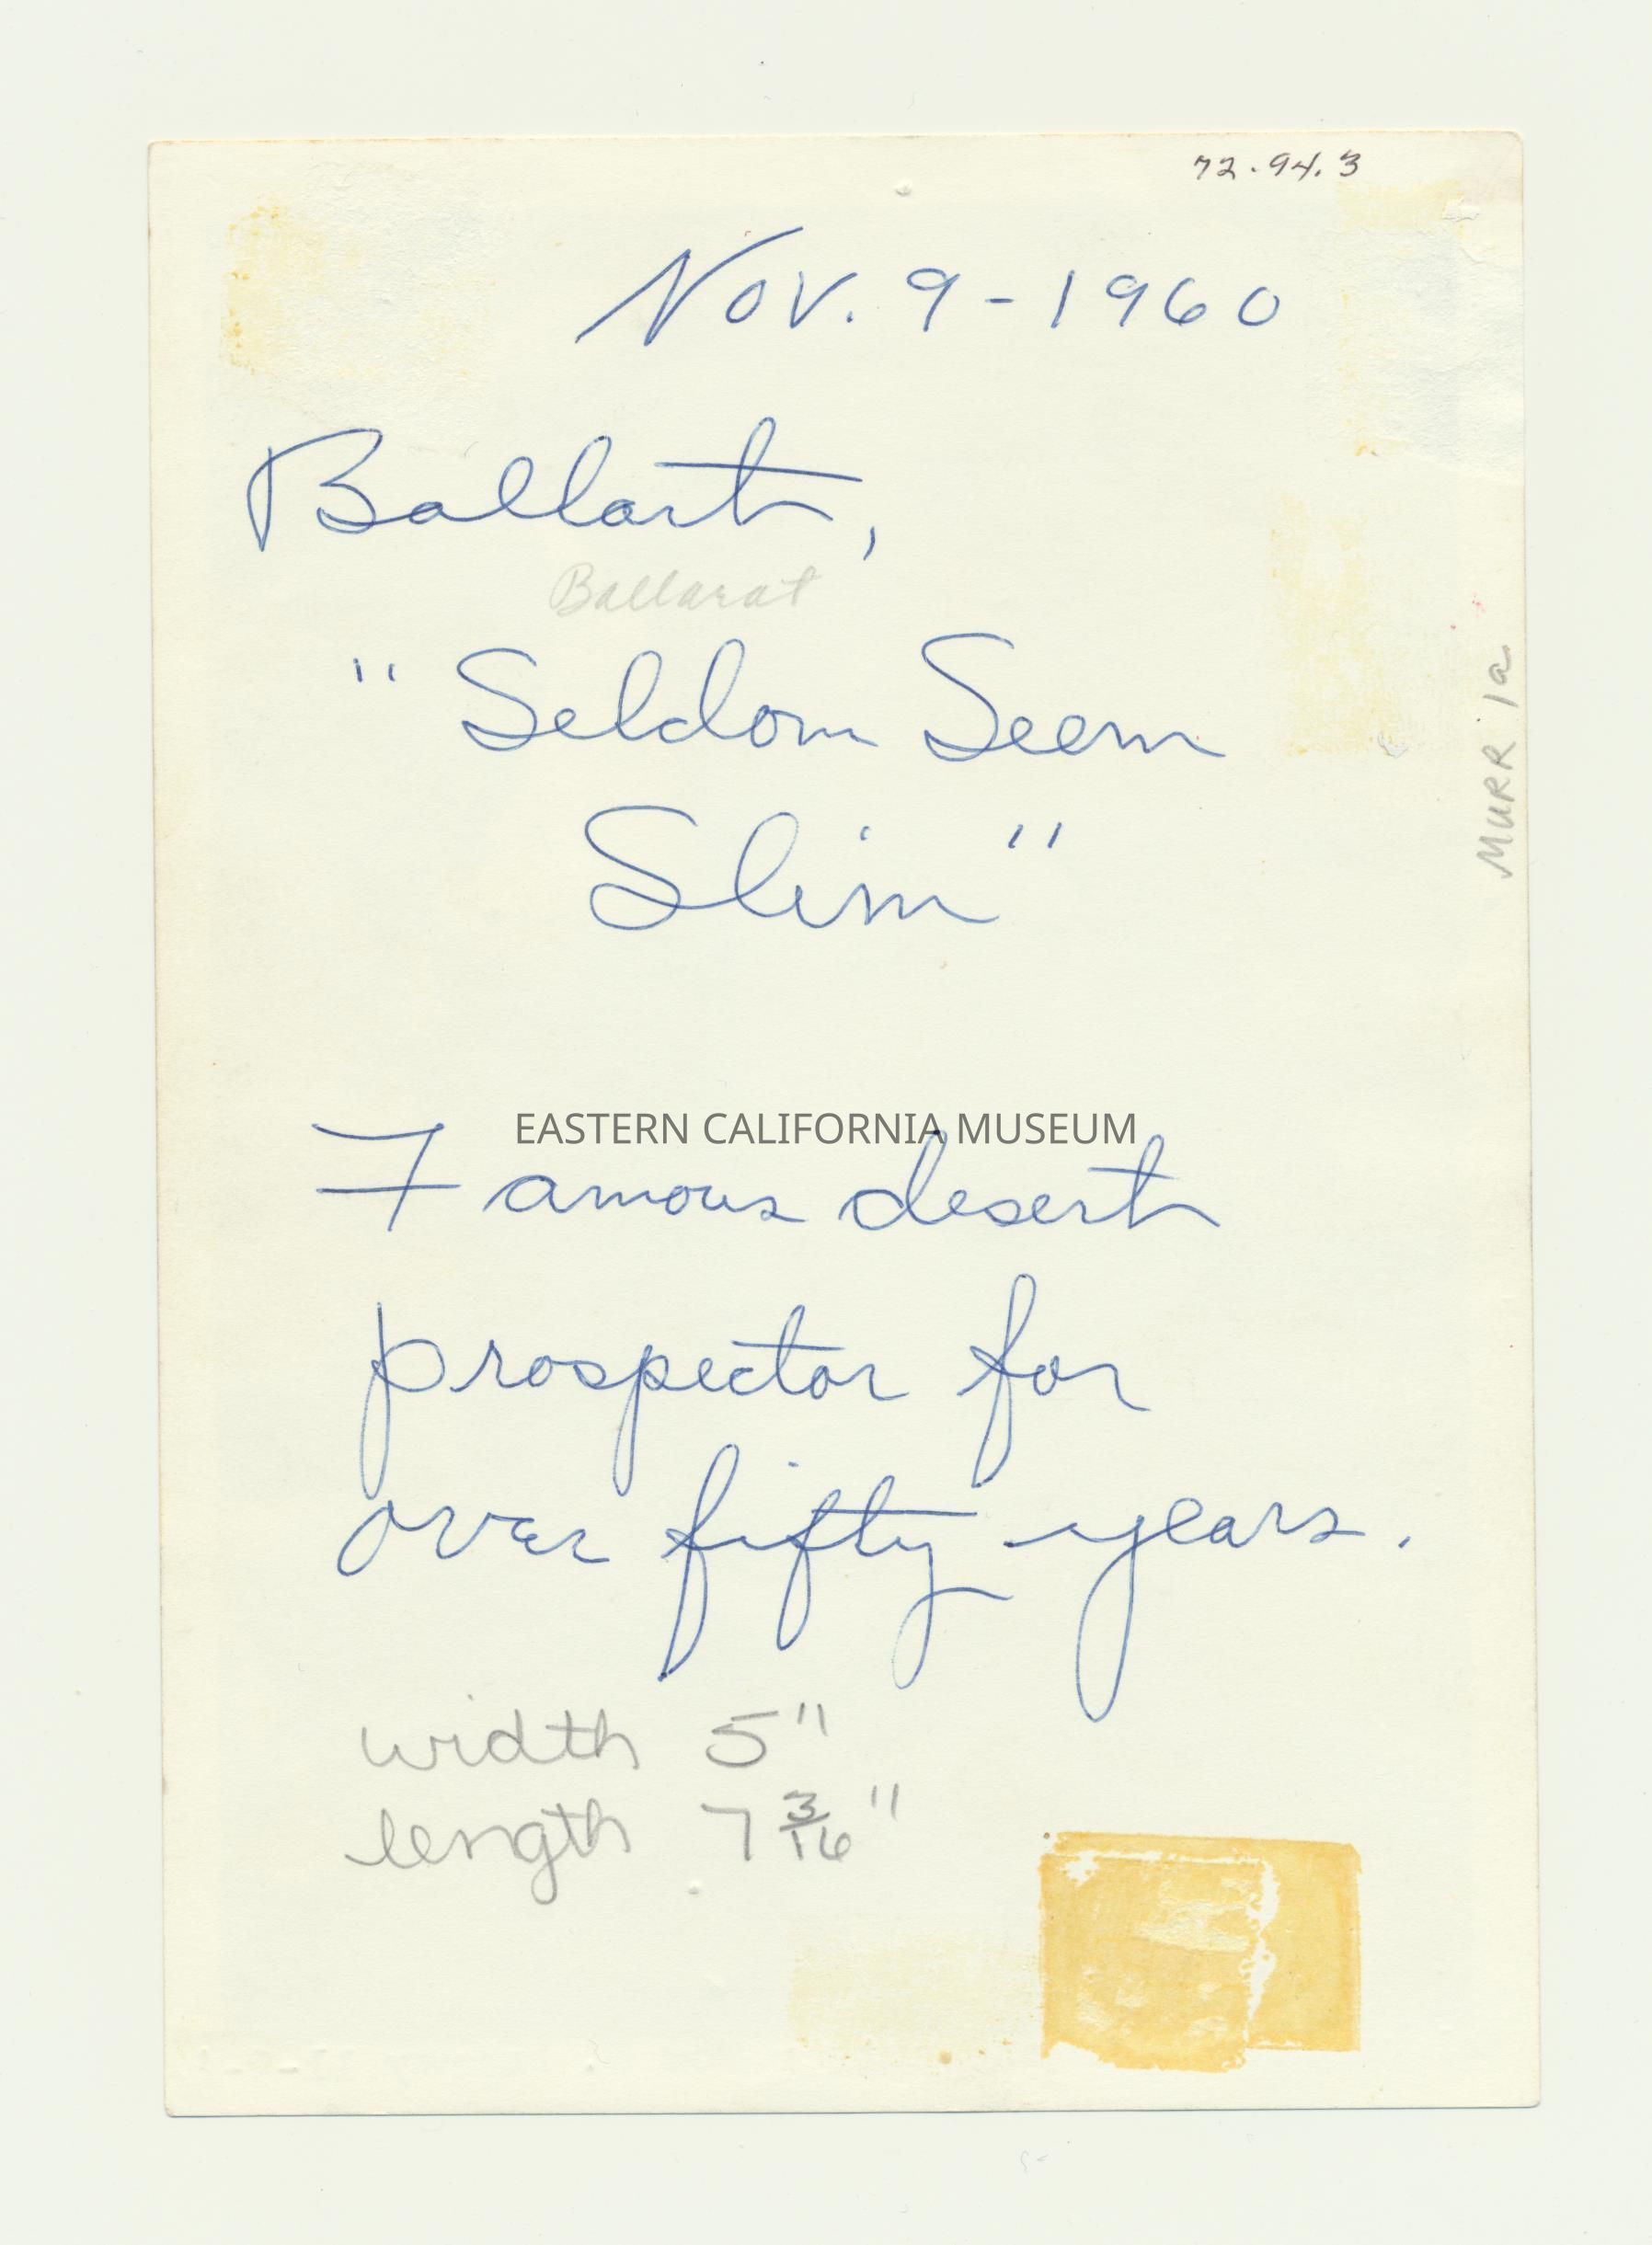 72.94.3
Nov. 9-1960
Ballart,
Ballarat
"Seldom Seem
Slim"
MURR 1a
EASTERN CALIFORNIA MUSEUM
Famous desert
prospector for
over fifty years.
width 5"
length 7 3/16"